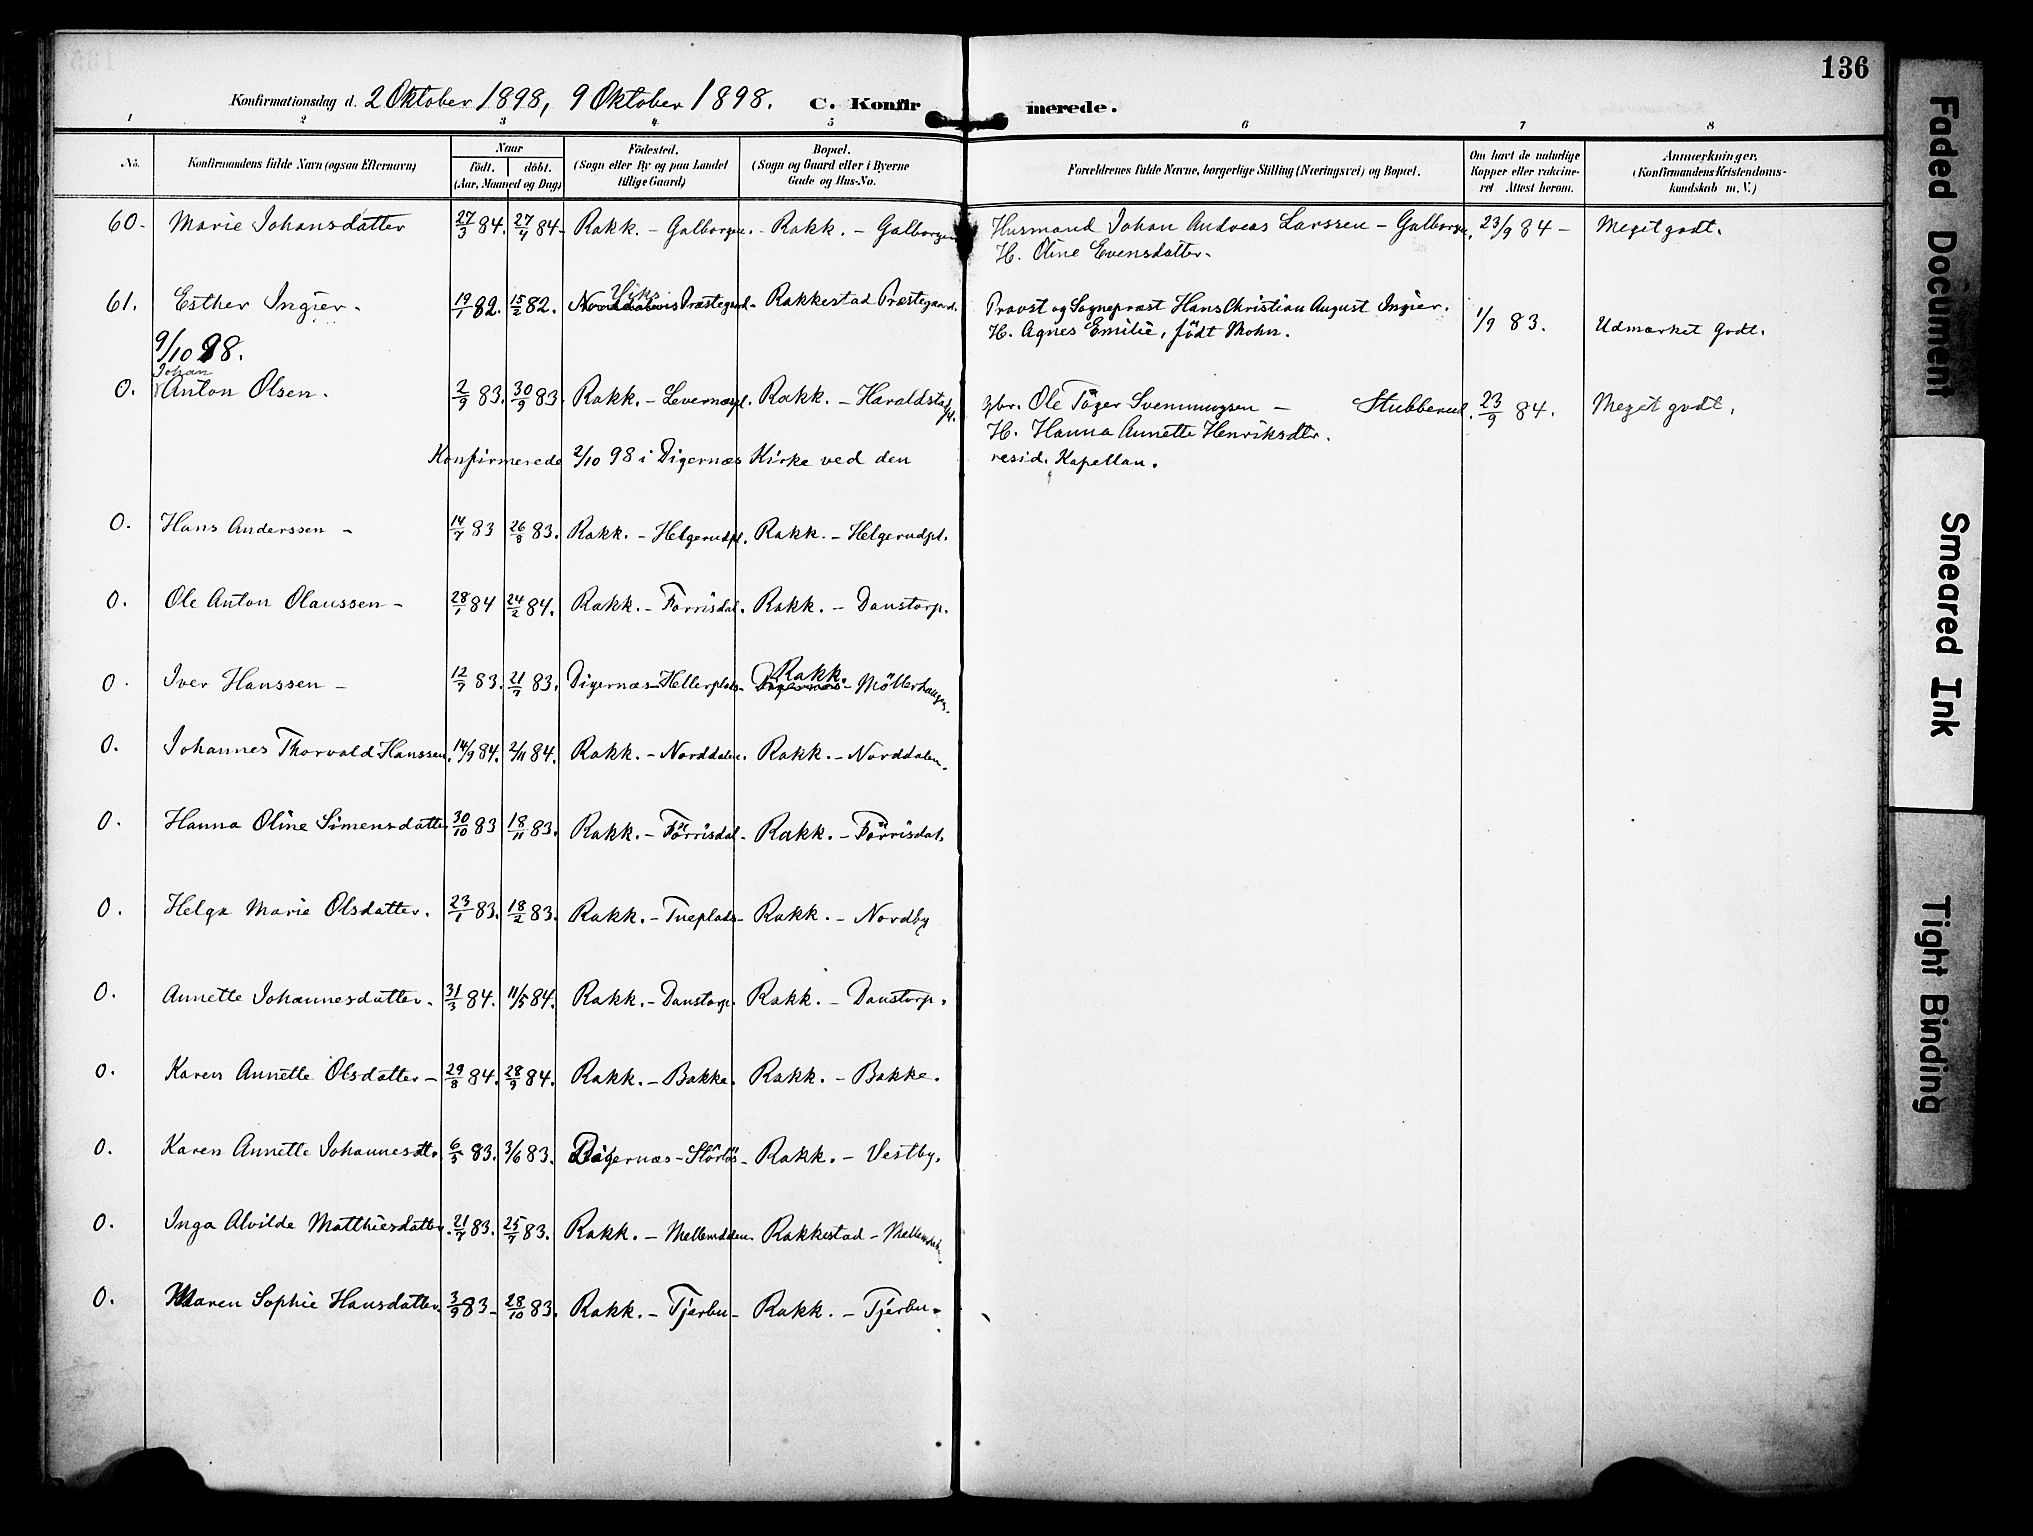 136
Konfirmationsdag d. 2 Oktober 1898, 9 Oktober 1898. C. Konfirmerede.
1 2 3 4 5 6 7 8
No. Konfirmandens fulde Navn (ogsaa Efternavn) Naar födt. döbt. (Aar, Maaned og Dag) Födested. (Sogn eller By og paa Landet tillige Gaard) Bopæl. (Sogn og Gaard eller i Byerne Gade og Hus-No. Forældrenes fulde Navne, borgerlige Stilling (Næringsvei) og Bopæl. Om havt de naturlige Kopper eller vakcineret. Attest herom. Anmærkninger. (Konfirmandens Kristendomskundskab m. V.)
60. Marie Johansdatter 27/3 84. 27/4 84. Rakk. - Galborgen. Rakk. - Galborgen Husmand Johan Andreas Larssen - Galborgen. 23/9 84 - Meget godt.
H. Oline Evensdatter.
61. Esther Ingier. 19/1 82. 15/2 82. Viks Præstegaard. Rakkestad Præstegaard. Provst og Sognepræst Hans Christian August Ingier. 1/9 83. Udmærket godt.
H. Agnes Emilie, födt Mohn.
9/10 98.
0. Johan Anton Olsen. 2/9 83. 30/9 83. Rakk. - Levernæspl. Rakk. - Haraldstadpl. gbr. Ole Töger Svenningsen - Stubberud. 23/9 84. Meget godt.
H. Hanna Annette Henriksdtr.
Konfirmerede 2/10 98 i Digernæs Kirke ved den resid. Kapellan.
0. Hans Anderssen - 14/7 83 26/8 83. Rakk. - Helgerudpl. Rakk. - Helgerudpl.
0. Ole Anton Olaussen - 28/1 84 24/2 84. Rakk. - Forrisdal. Rakk. - Danstorp.
0. Iver Hanssen - 12/7 83. 21/7 83. Digernæs - Hellerplads - Digernæs Rakk. - Möllerhaugen.
0. Johannes Thorvald Hanssen. 14/9 84. 2/11 84. Rakk. - Norddalen. Rakk. - Norddalen.
0. Hanna Oline Simensdatter 30/10 83 18/11 83. Rakk. -Förrisdal - Rakk. - Förrisdal.
0. Helga Marie Olsdatter. 23/1 83. 18/2 83. Rakk. - Tueplads - Rakk. - Nordby
0. Annette Johannesdatter. 31/3 84. 11/5 84. Rakk. - Danstorp. Rakk. - Danstorp.
0. Karen Annette Olsdatter - 29/8 84. 28/9 84. Rakk. - Bakke. Rakk. - Bakke.
0. Karen Annette Johannesdtr. 6/5 83. 3/6 83. Digernæs - Störlös - Rakk. - Vestby.
0. Inga Alvilde Matthiesdatter. 21/7 83. 25/7 83. Rakk. - Mellemdalen. Rakkestad - Mellemdalen.
0. Maren Sophie Hansdatter. 3/9 83 - 28/10 83. Rakk. - Tjerbu - Rakk. - Tjerbu.
Faded Document
Smeared Ink
Tight Binding